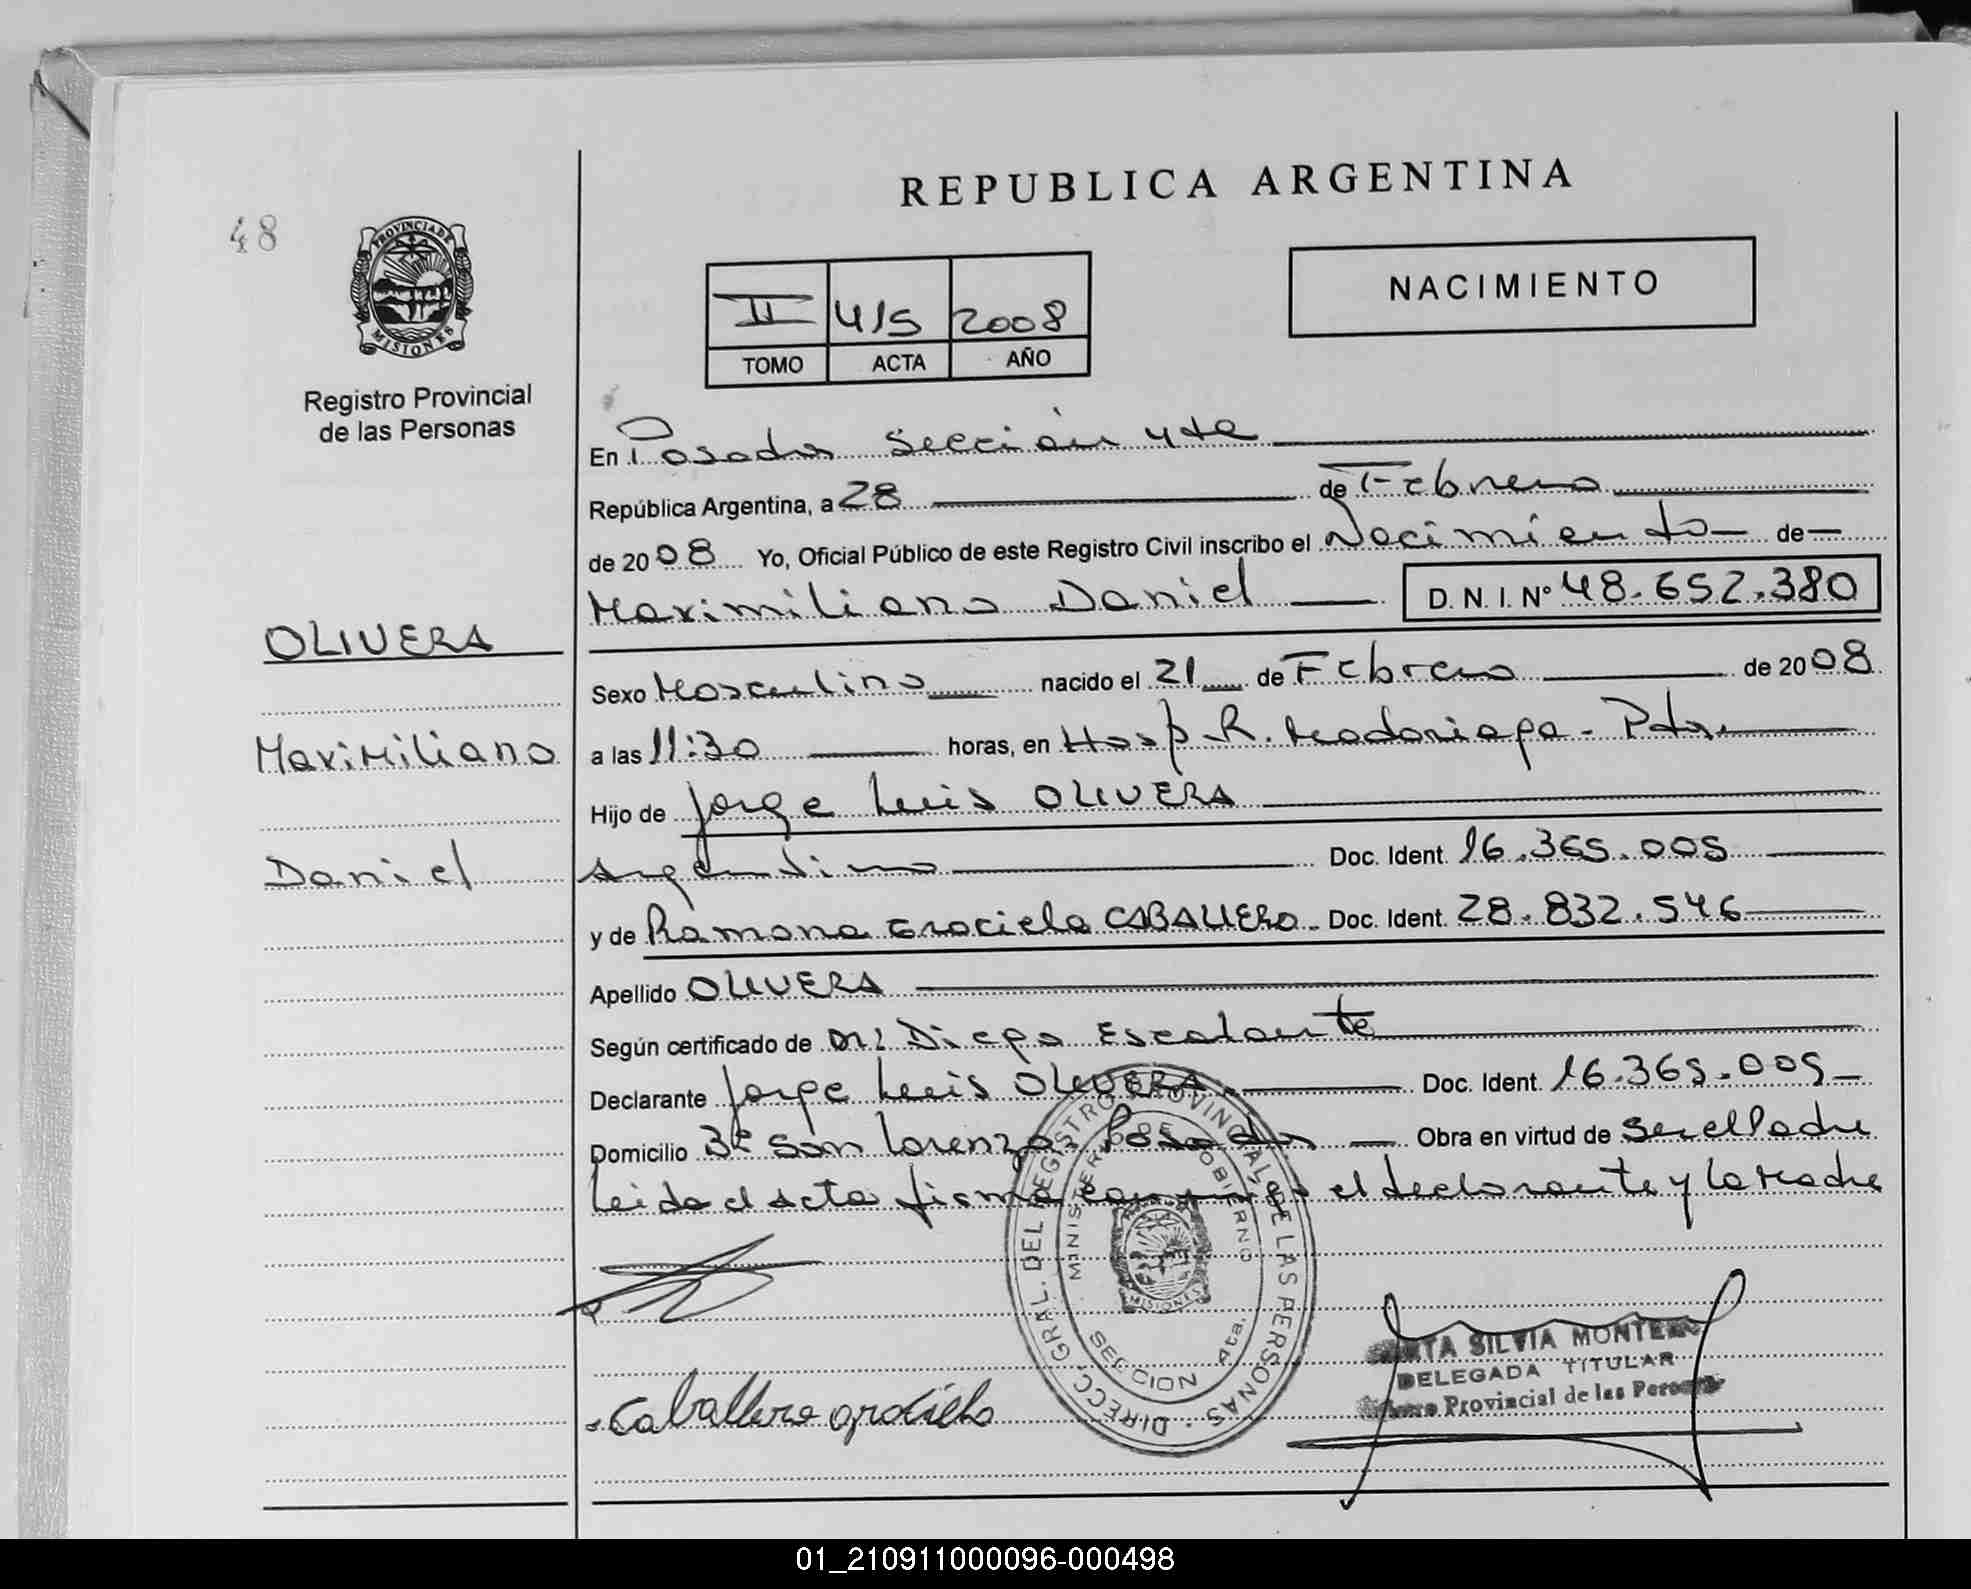 REPUBLICA ARGENTINA
48
PROVINCIA DE
MISIONES
Registro Provincial
de las Personas
II 415 2008
TOMO ACTA AÑO
NACIMIENTO
En Posadas Sección 4ta
República Argentina, a 28 de Febrero
de 2008 Yo, Oficial Público de este Registro Civil inscribo el Nacimiento de
Maximiliano Daniel D. N. I. Nº 48.652.380
OLIVERA
Maximiliano
Daniel
Sexo Masculino nacido el 21 de Febrero de 2008
a las 11:30 horas, en Hosp. R. Madariaga - Pdas
Hijo de Jorge Luis OLIVERA
Argentino Doc. Ident. 16.365.005
y de Ramona Graciela CABALLERO Doc. Ident. 28.832.546
Apellido OLIVERA
Según certificado de Dr: Diego Escalante
Declarante Jorge Luis OLIVERA Doc. Ident. 16.365.005
Domicilio San Lorenzo Posadas Obra en virtud de ser el Padre
Leida el acta firma conmigo el declarante y la Madre
DIRECC. GRAL. DEL REGISTRO PROVINCIAL DE LAS PERSONAS
MINISTERIO DE GOBIERNO
MISIONES
SECCION 4ta.
Caballero graciela
SILVIA
DELEGADA TITULAR
Provincial de las
01_210911000096-000498